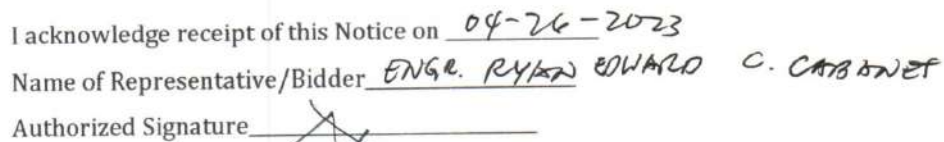 I acknowledge receipt of this Notice on 04-26-2023
Name of Representative/Bidder ENGR. RYAN EDWARD C. CABANET
Authorized Signature